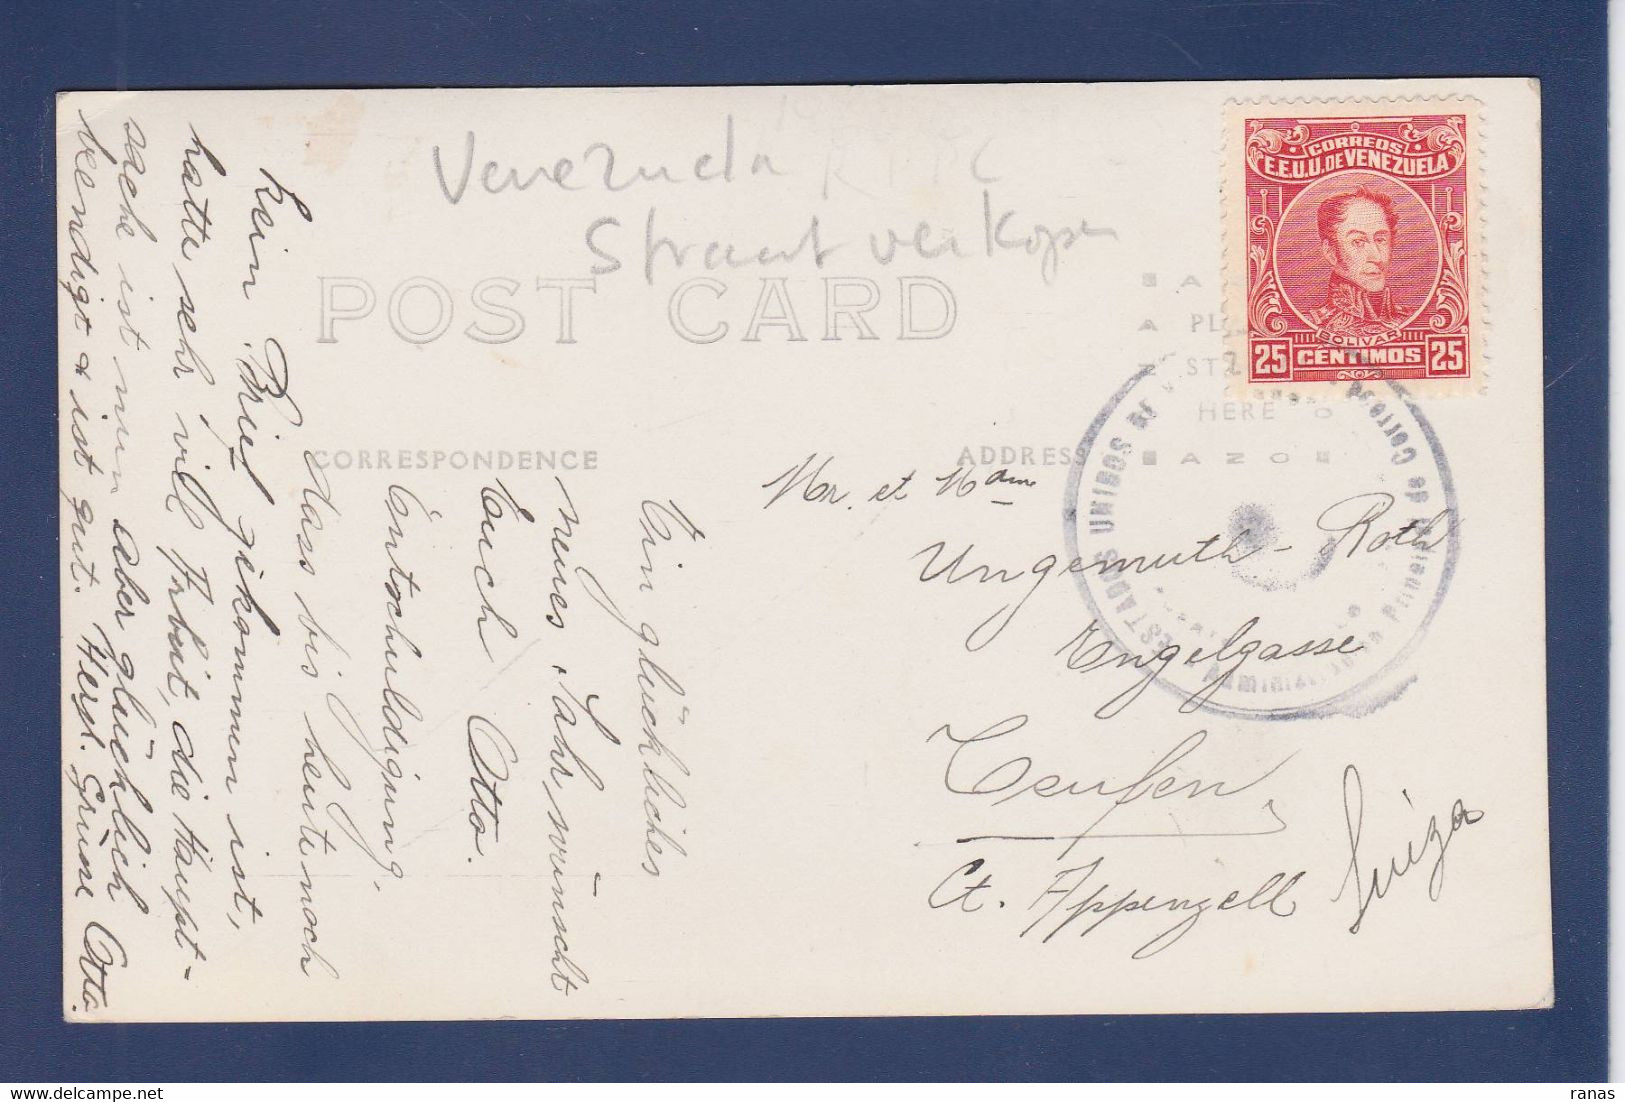 Venezuela
Straat verkoper
POST CARD
CORRESPONDENCE
ADDRESS
CORREOS
E.E.U.U. DE VENEZUELA
BOLIVAR
25 CENTIMOS 25
HERE
AZO
ESTADOS UNIDOS DE
de Correos
Ein glückliches
neues Jahr wünscht
Euch Otto.
Entschuldigung,
dass bis heute noch
kein Brief gekommen ist,
hatte sehr viel Arbeit, die Haupt-
sache ist nun aber glücklich
beendigt & ist gut. Herzl. Grüsse Otto.
Mr. et Mame
Ungemuth-Roth
Engelgasse
Teufen
Ct. Appenzell
Suiza
ranas